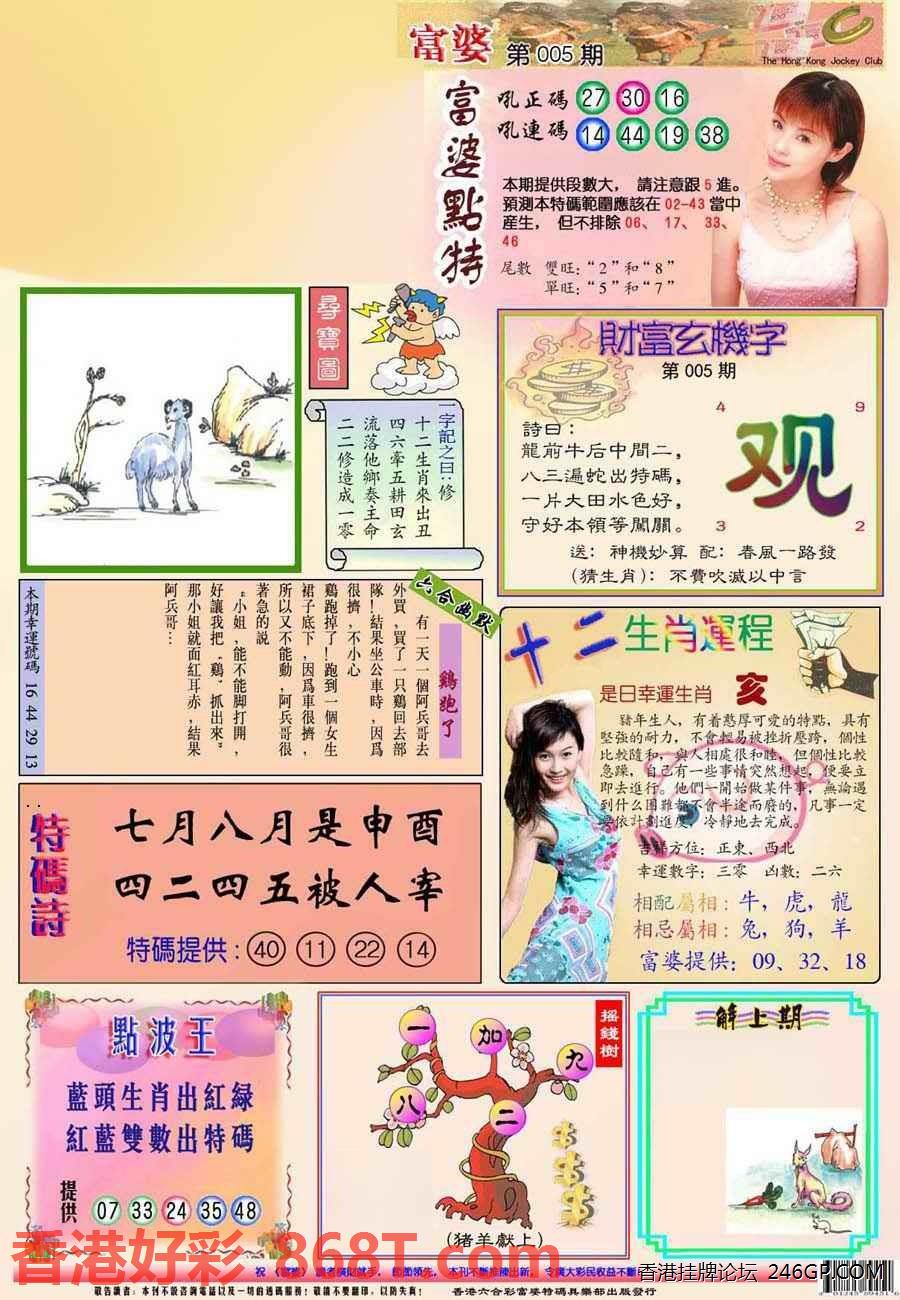 富婆 第005期
The Hong Kong Jockey Club
富婆點特
吼正碼 27 30 16
吼連碼 14 44 19 38
本期提供段數大， 請注意跟5進。
預測本特碼範圍應該在02-43當中
産生， 但不排除06、 17、 33、
46
尾數 雙旺:“2”和“8”
單旺:“5”和“7”
尋寶圖
一字記之曰:修
十二生肖來出丑
四六牽五耕田玄
流落他鄉奏主命
二二修造成一零
財富玄機字
第005期
詩曰:
龍前牛后中間二，
八三遍蛇出特碼，
一片大田水色好，
守好本領等闖關。
4
9
观
3
2
送: 神機妙算 配: 春風一路發
(猜生肖): 不費吹滅以中言
六合幽默
鷄跑了
有一天一個阿兵哥去
外買,買了一只鷄回去部
隊!結果坐公車時,因爲
很擠,不小心
鷄跑掉了!跑到一個女生
裙子底下,因爲車很擠,
所以又不能動,阿兵哥很
著急的説
“小姐,能不能脚打開,
好讓我把“鷄”抓出來”
那小姐就面紅耳赤,結果
阿兵哥…
本期幸運號碼 16 44 29 13
十二生肖運程
是日幸運生肖 亥
豬年生人，有着憨厚可愛的特點，具有
堅強的耐力，不會輕易被挫折壓跨，個性
比較隨和，與人相處很和睦，但個性比較
急躁，自己有一些事情突然想起，便要立
即去進行。他們一開始做某件事，無論遇
到什么困難都不會半途而廢的，凡事一定
要依計劃進度，冷靜地去完成。
吉祥方位: 正東、西北
幸運數字: 三零 凶數: 二六
相配屬相: 牛，虎，龍
相忌屬相: 兔，狗，羊
富婆提供: 09、32、18
特碼詩
七月八月是申酉
四二四五被人宰
特碼提供: 40 11 22 14
點波王
藍頭生肖出紅緑
紅藍雙數出特碼
提供 07 33 24 35 48
摇錢樹
一 加 九
八 二
(猪羊獻上)
解上期
香港好彩 868T.com
祝《富婆》讀者橫財就手， 節節領先， 本刊不斷推陳出新， 令廣大彩民收益不斷
香港挂牌论坛 246GP.COM
敬告讀者: 本刊不設咨詢電話以及一切的透碼服務! 敬請不要翻印，以防失真!
香港六合彩富婆特碼俱樂部出版發行